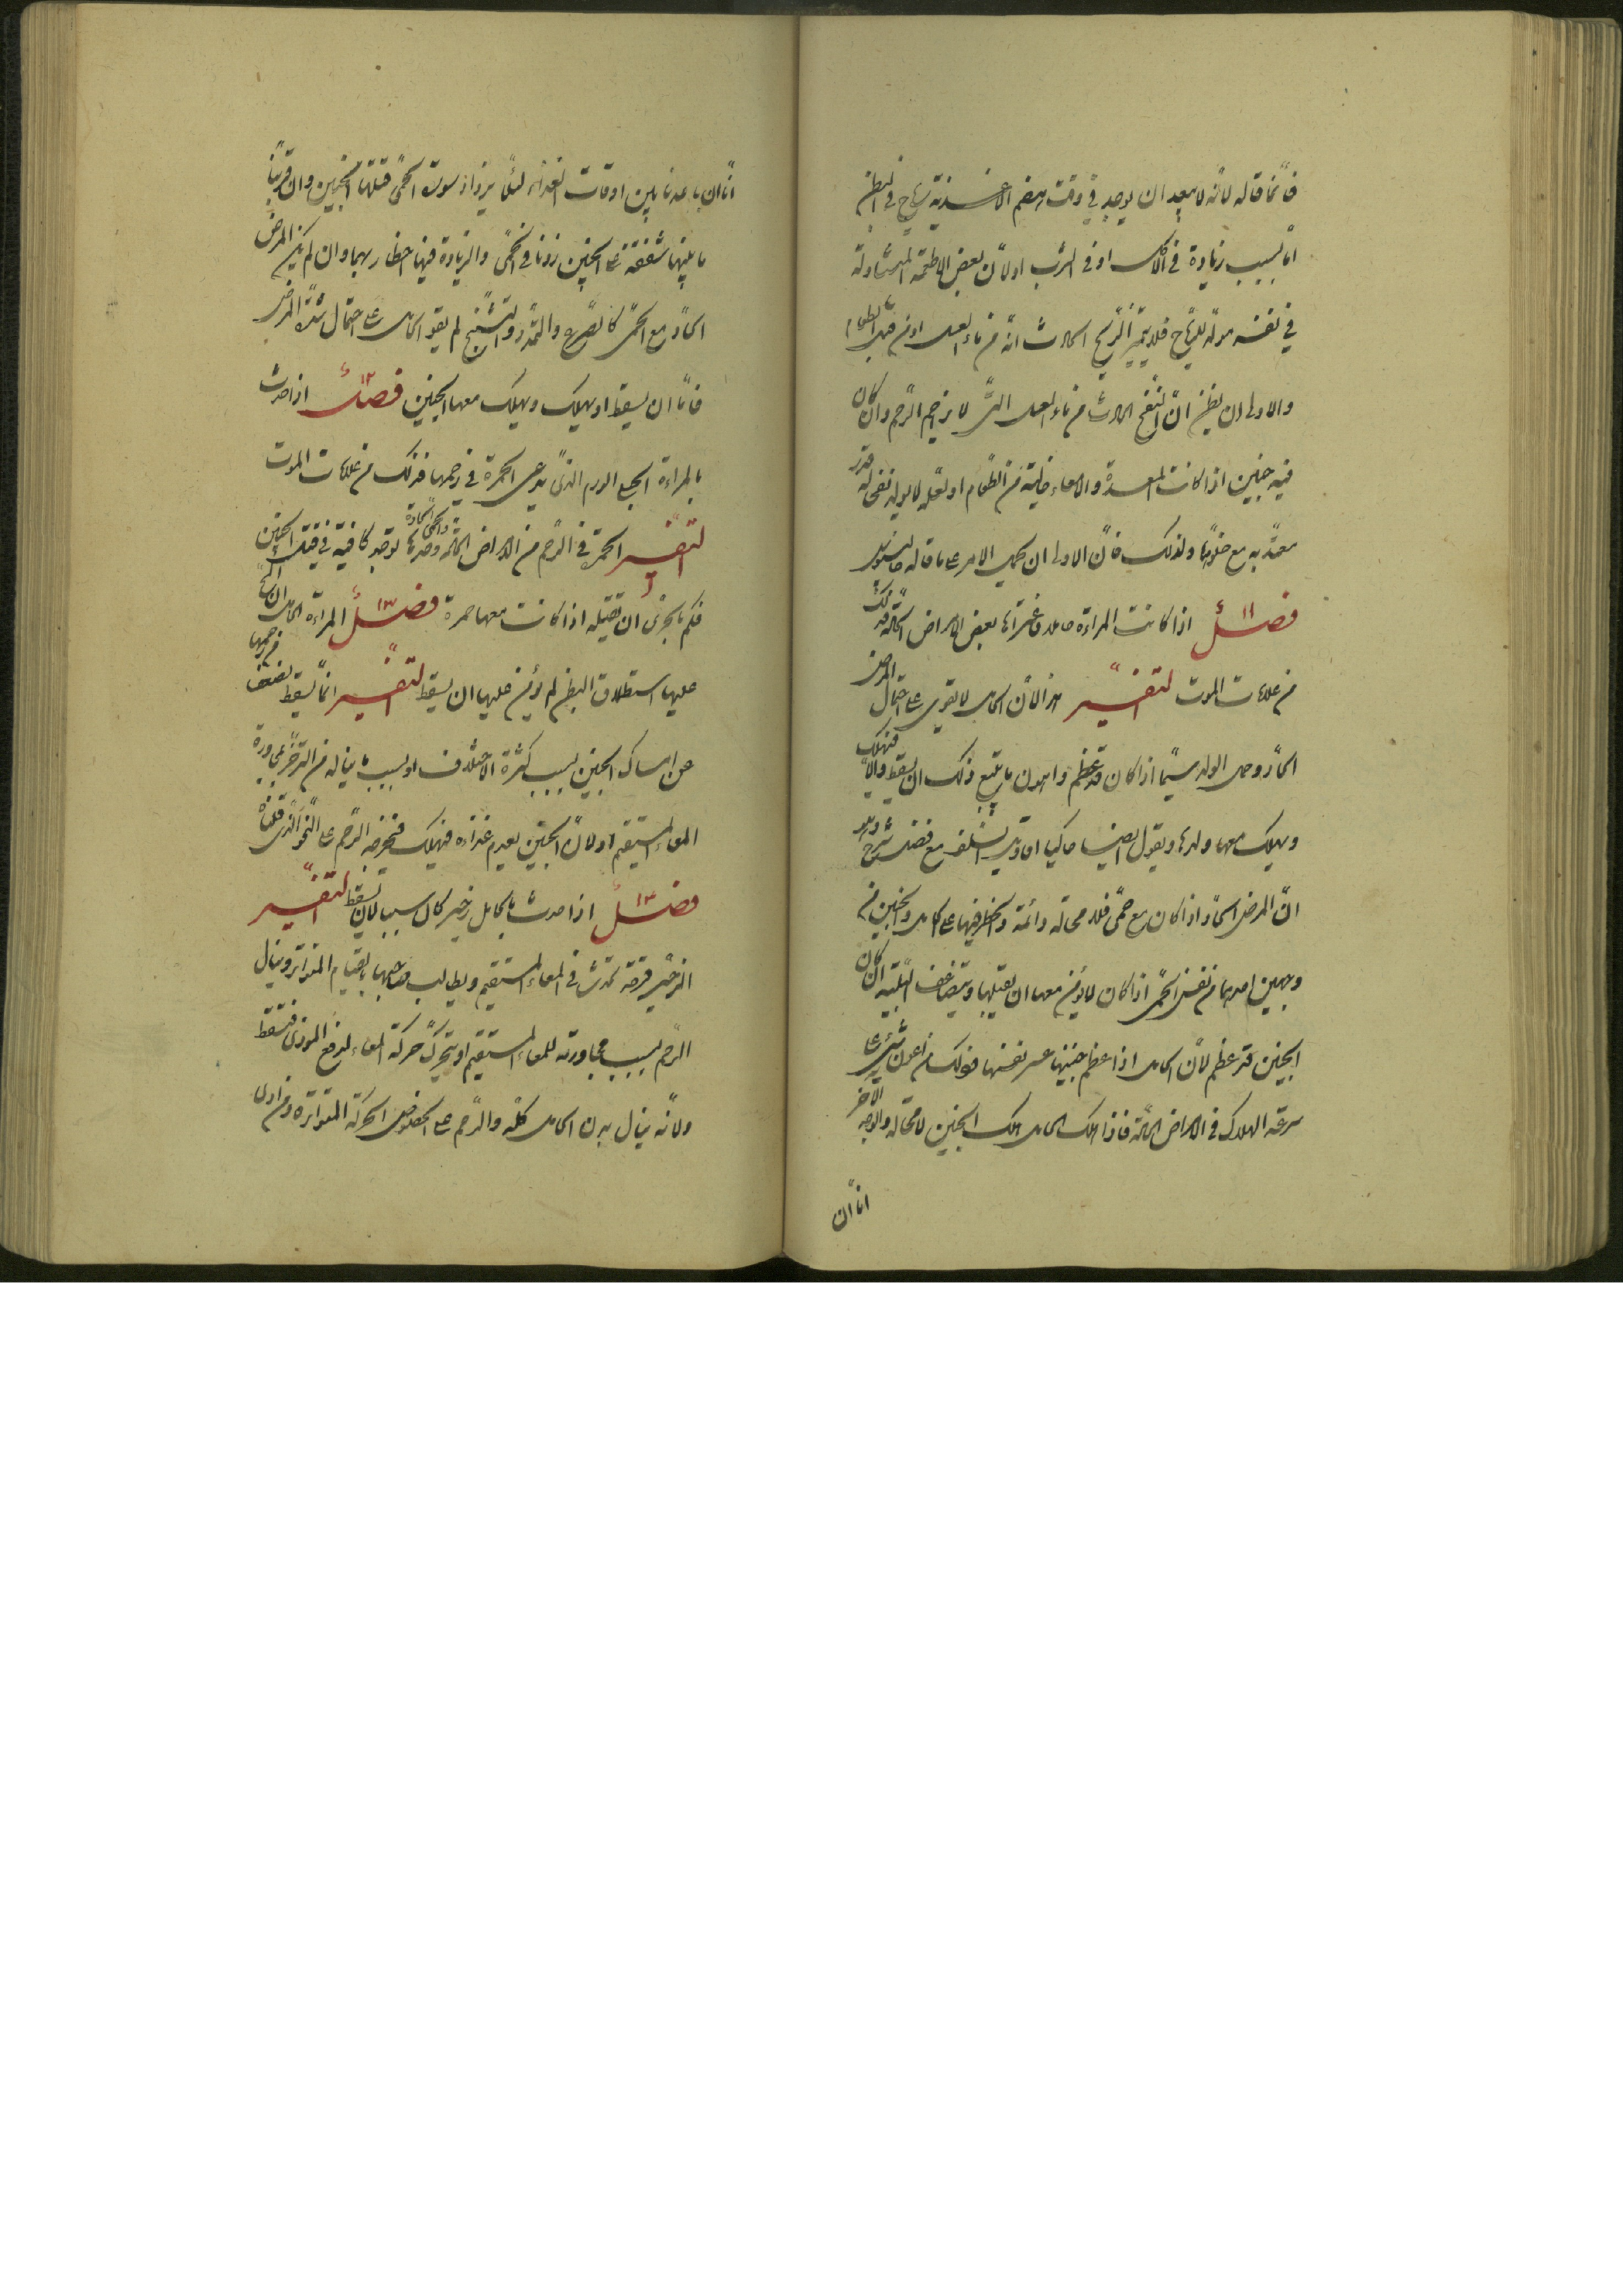 فانما قاله لانه لا يبعد ان يوجد في وقت هضم الاغذية رياح في البطن
اما بسبب زيادة في الاكل او في الشرب او لان بعض الاطعمة المتناولة
في نفسه مولد للرياح فلا يتميز الريح الحادث انه من ماء العسل او من قبل الطعام
والاولى ان يظن ان النفخ الحادث من ماء العسل لا يزاحم الرحم وان كان
فيه جنين اذا كانت المعدة والامعاء خالية من الطعام او لعله لا يولد نفخا له قدر
معتد به مع خلوهما ولذلك فان الاولى ان يحمل الامر على ما قاله جالينوس
فصل ١١ اذا كانت المراءة حاملا فاعتراها بعض الامراض الحادة فذلك
من علامات الموت التفسير هذا لان الحامل لا تقوى على احتمال المرض
الحاد وحمل الولد سيما اذا كان قد عظم واهون ما يتبع ذلك ان يسقط والا فتهلك
ويهلك معها ولدها ونقول ايضا حاكيا اقاويل السلف مع فضل شرح وهو
ان المرض الحاد اذا كان مع حمى فلا محالة دائمة والخطر فيها على الحامل والجنين من
وجهين احدهما من نفس الحمى اذا كان لا يؤمن معها ان تقتلها ويتضاعف البلية ان كان
الجنين قد عظم لان الحامل اذا عظم جنينها عسر نفسها فذلك من اعون شيء على
سرعة الهلاك في الامراض الحادة فاذا هلك الحامل هلك الجنين لا محالة والوجه الاخر
انا ان
انا ان باعدنا بين اوقات الغذاء لئلا يزداد سورة الحمى قتلنا الجنين وان قربنا
ما بينها شفقة على الجنين زدنا في الحمى والزيادة فيها اخطار بهما وان لم يكن المرض
الحاد مع الحمى كالصرع والتمدد والتشنج لم يقو الحامل على احتمال شدة المرض
فاما ان يسقط او تهلك ويهلك معها الجنين فصل ١٢ اذا حدث
بالمراءة الحبلى الورم الذي يدعى الحمرة في رحمها فذلك من علامات الموت
التفسير الحمرة في الرحم من الامراض الحادة وحدها توجد كافية في قتل الجنين
والحمى الحادة
فكم بالحرى ان تقتله اذا كانت معها حمرة فصل ١٣ المراءة الحامل ان الح
عليها استطلاق البطن لم يؤمن عليها ان يسقط التفسير انما يسقط لضعف رحمها
عن امساك الجنين بسبب كثرة الاختلاف او بسبب ما يناله من التزحر بمجاورة
المعاء المستقيم او لان الجنين يعدم غذاءه فيهلك فيخرجه الرحم على النحو الذي قلناه
فصل ١٣ اذا حدث بالحامل زحير كان سببا لان تسقط التفسير
الزحير قرحة تحدث في المعاء المستقيم ويطالب صاحبها بالقيام المتواتر وينال
الرحم بسبب مجاورته للمعاء المستقيم او يتحرك حركة المعاء لدفع الموذى فتسقط
ولانه ينال بدن الحامل كله والرحم على الخصوص الحركة المتواترة ومن اذى